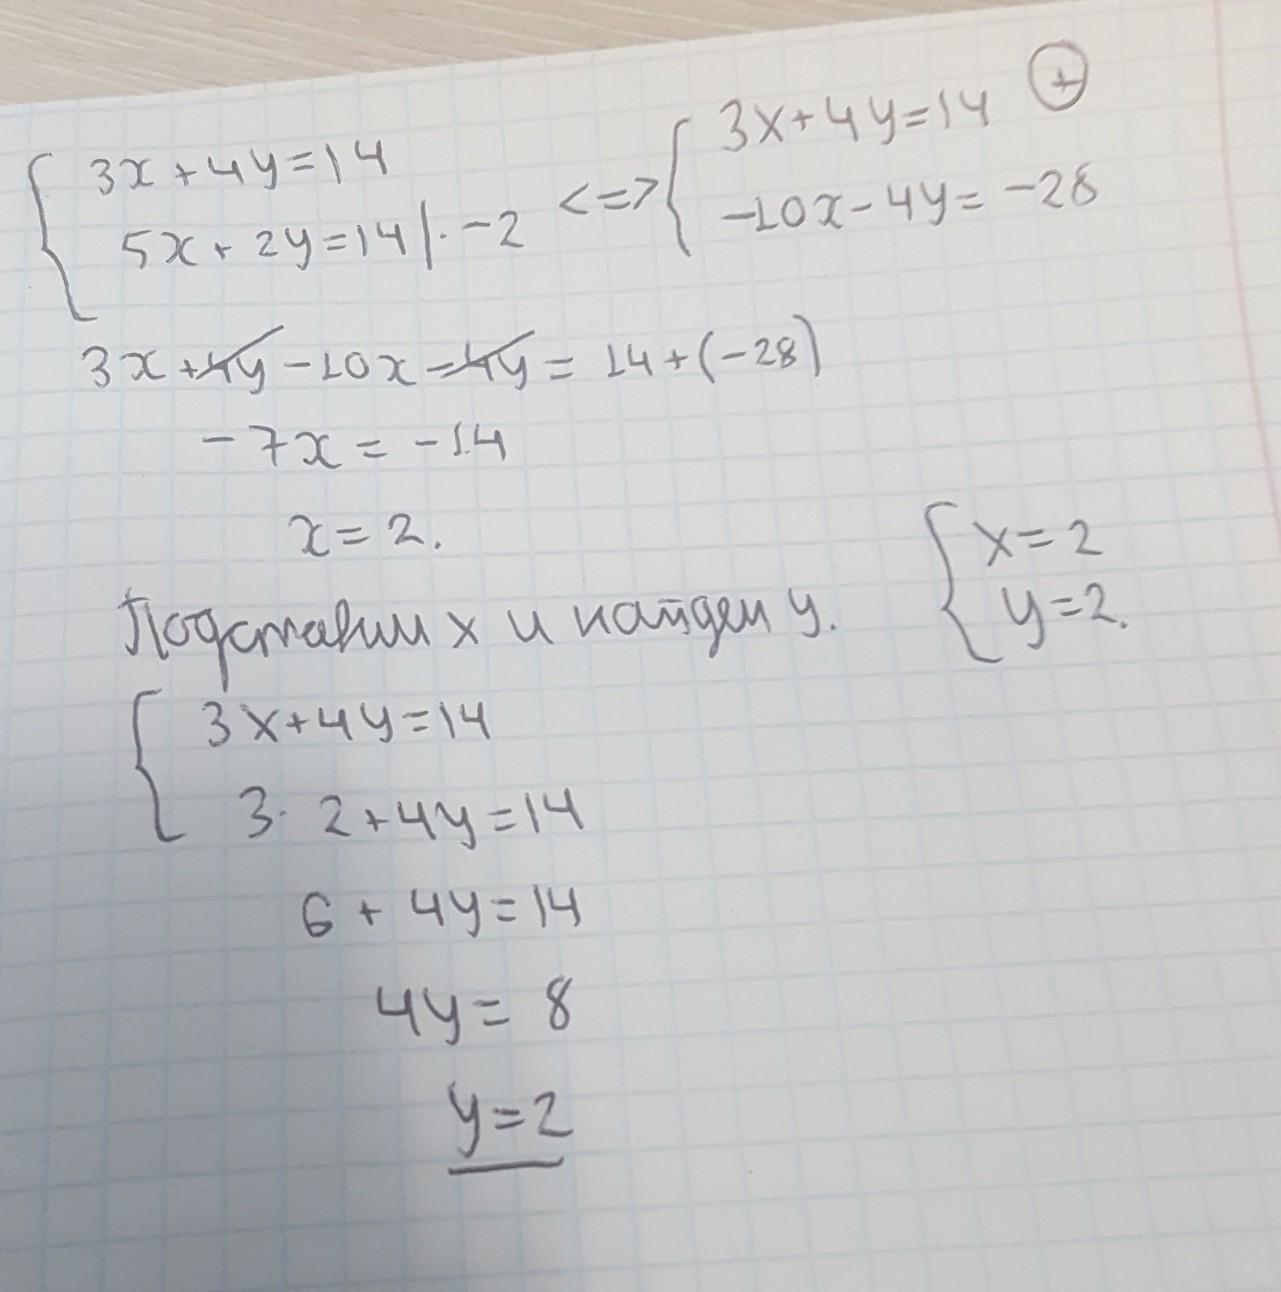 3x+4y=14
5x+2y=14|·-2 <=> 3x+4y=14 +
-10x-4y=-28
3x+4y-10x-4y=14+(-28)
-7x=-14
x=2.
Подставим x и найдем y.
x=2
y=2.
3x+4y=14
3·2+4y=14
6+4y=14
4y=8
y=2